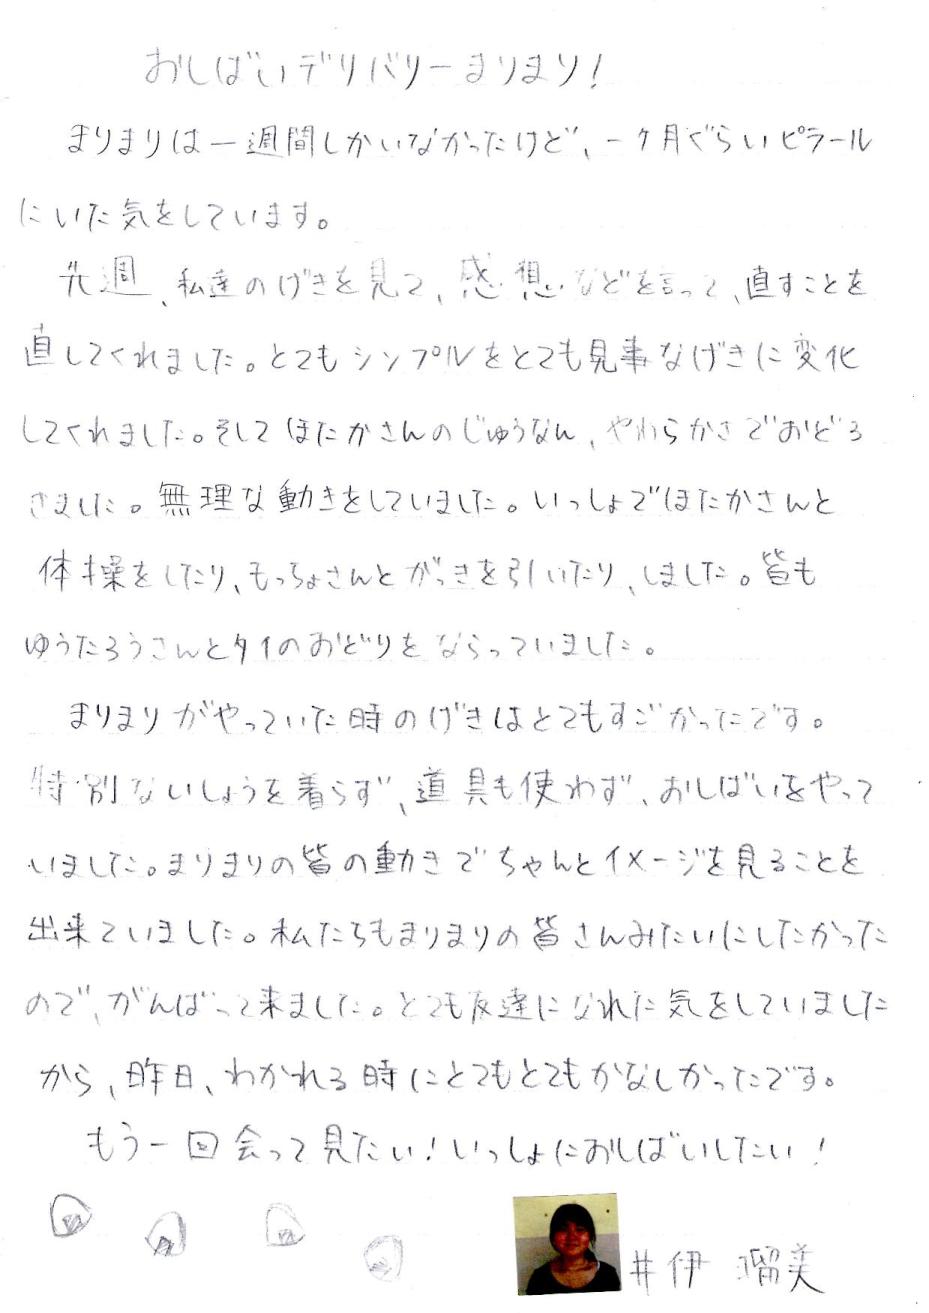 おしばいデリバリーまりまり！
まりまりは一週間しかいなかったけど、一ヶ月ぐらいピラール
にいた気をしています。
先週、私達のげきを見て、感想などを言って、直すことを
直してくれました。とてもシンプルをとても見事なげきに変化
してくれました。そしてほたかさんのじゅうなん、やわらかさでおどろ
きました。無理な動きをしていました。いっしょでほたかさんと
体操をしたり、もっちょさんとがっきを引いたり、しました。皆も
ゆうたろうさんとタイのおどりをならっていました。
まりまりがやっていた時のげきはとてもすごかったです。
特別ないしょうを着らず、道具も使わず、おしばいをやって
いました。まりまりの皆の動きでちゃんとイメージを見ることを
出来ていました。私たちもまりまりの皆さんみたいにしたかった
ので、がんばって来ました。とても友達になれた気をしていました
から、昨日、わかれる時にとてもとてもかなしかったです。
もう一回会って見たい！いっしょにおしばいしたい！
井伊 瑠美